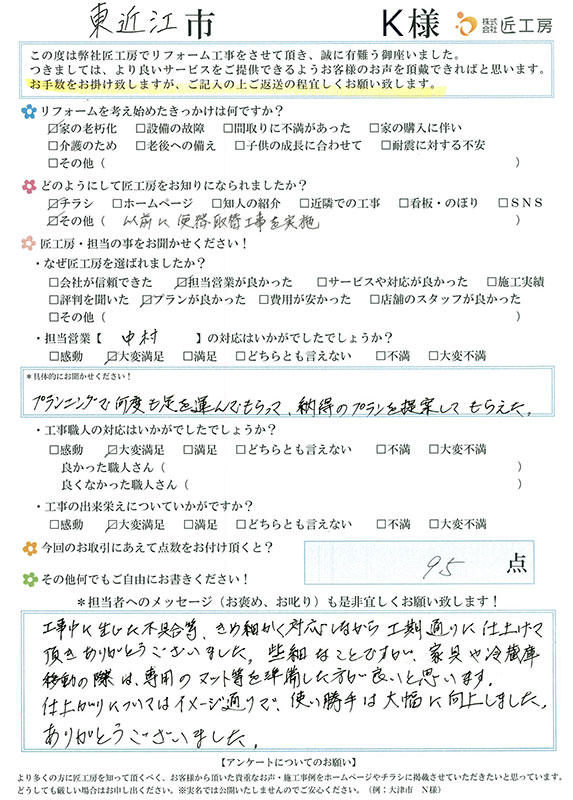 東近江市 K様 株式会社 匠工房
この度は弊社匠工房でリフォーム工事をさせて頂き、誠に有難う御座いました。
つきましては、より良いサービスをご提供できるようお客様のお声を頂戴できればと思います。
お手数をお掛け致しますが、ご記入の上ご返送の程宜しくお願い致します。
リフォームを考え始めたきっかけは何ですか?
☑家の老朽化 □設備の故障 □間取りに不満があった □家の購入に伴い
□介護のため □老後への備え □子供の成長に合わせて □耐震に対する不安
□その他( )
どのようにして匠工房をお知りになられましたか?
☑チラシ □ホームページ □知人の紹介 □近隣での工事 □看板・のぼり □SNS
☑その他( 以前に便器取替工事を実施 )
匠工房・担当の事をお聞かせください!
・なぜ匠工房を選ばれましたか?
□会社が信頼できた ☑担当営業が良かった □サービスや対応が良かった □施工実績
□評判を聞いた ☑プランが良かった □費用が安かった □店舗のスタッフが良かった
□その他( )
・担当営業【 中村 】の対応はいかがでしたでしょうか?
□感動 ☑大変満足 □満足 □どちらとも言えない □不満 □大変不満
*具体的にお聞かせください!
プランニングで何度も足を運んでもらって、納得のプランを提案してもらえた。
・工事職人の対応はいかがでしたでしょうか?
□感動 ☑大変満足 □満足 □どちらとも言えない □不満 □大変不満
良かった職人さん( )
良くなかった職人さん( )
・工事の出来栄えについていかがですか?
□感動 ☑大変満足 □満足 □どちらとも言えない □不満 □大変不満
今回のお取引にあえて点数をお付け頂くと? 95 点
その他何でもご自由にお書きください!
*担当者へのメッセージ(お褒め、お叱り)も是非宜しくお願い致します!
工事中に生じた不具合等、きめ細かく対応しながら工期通りに仕上げて
頂きありがとうございました。些細なことですが、家具や冷蔵庫
移動の際は、専用のマット等を準備した方が良いと思います。
仕上がりについてはイメージ通りで、使い勝手は大幅に向上しました。
ありがとうございました。
【アンケートについてのお願い】
より多くの方に匠工房を知って頂くべく、お客様から頂いた貴重なお声・施工事例をホームページやチラシに掲載させていただきたいと思っています。
どうしても厳しい場合はお申し出ください。※実名では公開いたしませんのでご安心ください。(例:大津市 N様)